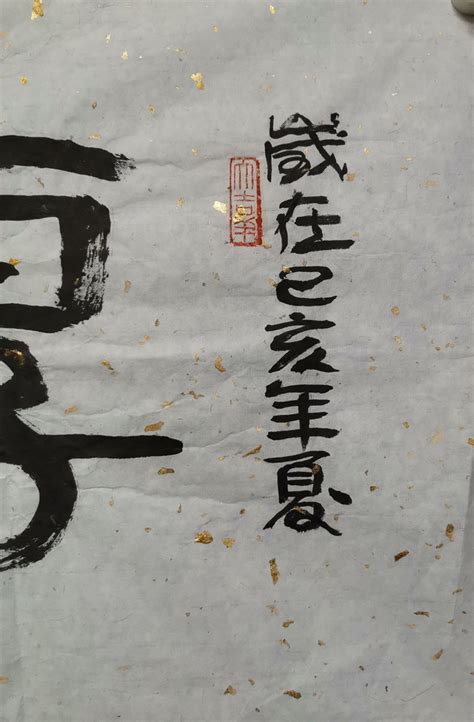 歲在己亥年夏